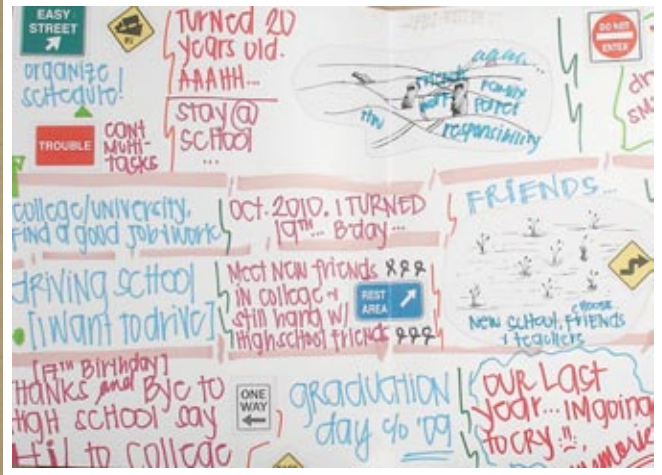 EASY
STREET
organize
schedule!
TROUBLE
CANT
MULTI-
TASKS
TURNED 20
years old.
AAAHH...
STAY @
SCHOOL
...
again...
friends
Family
Forret
responsibility
DO NOT
ENTER
college/university.
Find a good job + work
OCT. 2010. I TURNED
19TH... B-day...
FRIENDS...
DRIVING SCHOOL
[I want to drive]
Meet New friends
in college +
still hang w/
High school friends
REST
AREA
NEW SCHOOL, FRIENDS
CHOOSE
+ teachers
[17TH Birthday]
THANKS and Bye to
HIGH SCHOOL SAY
Hi! to College
ONE
WAY
GRADUATION
day c/o '09
OUR LAST
year... IM going
to CRY !!